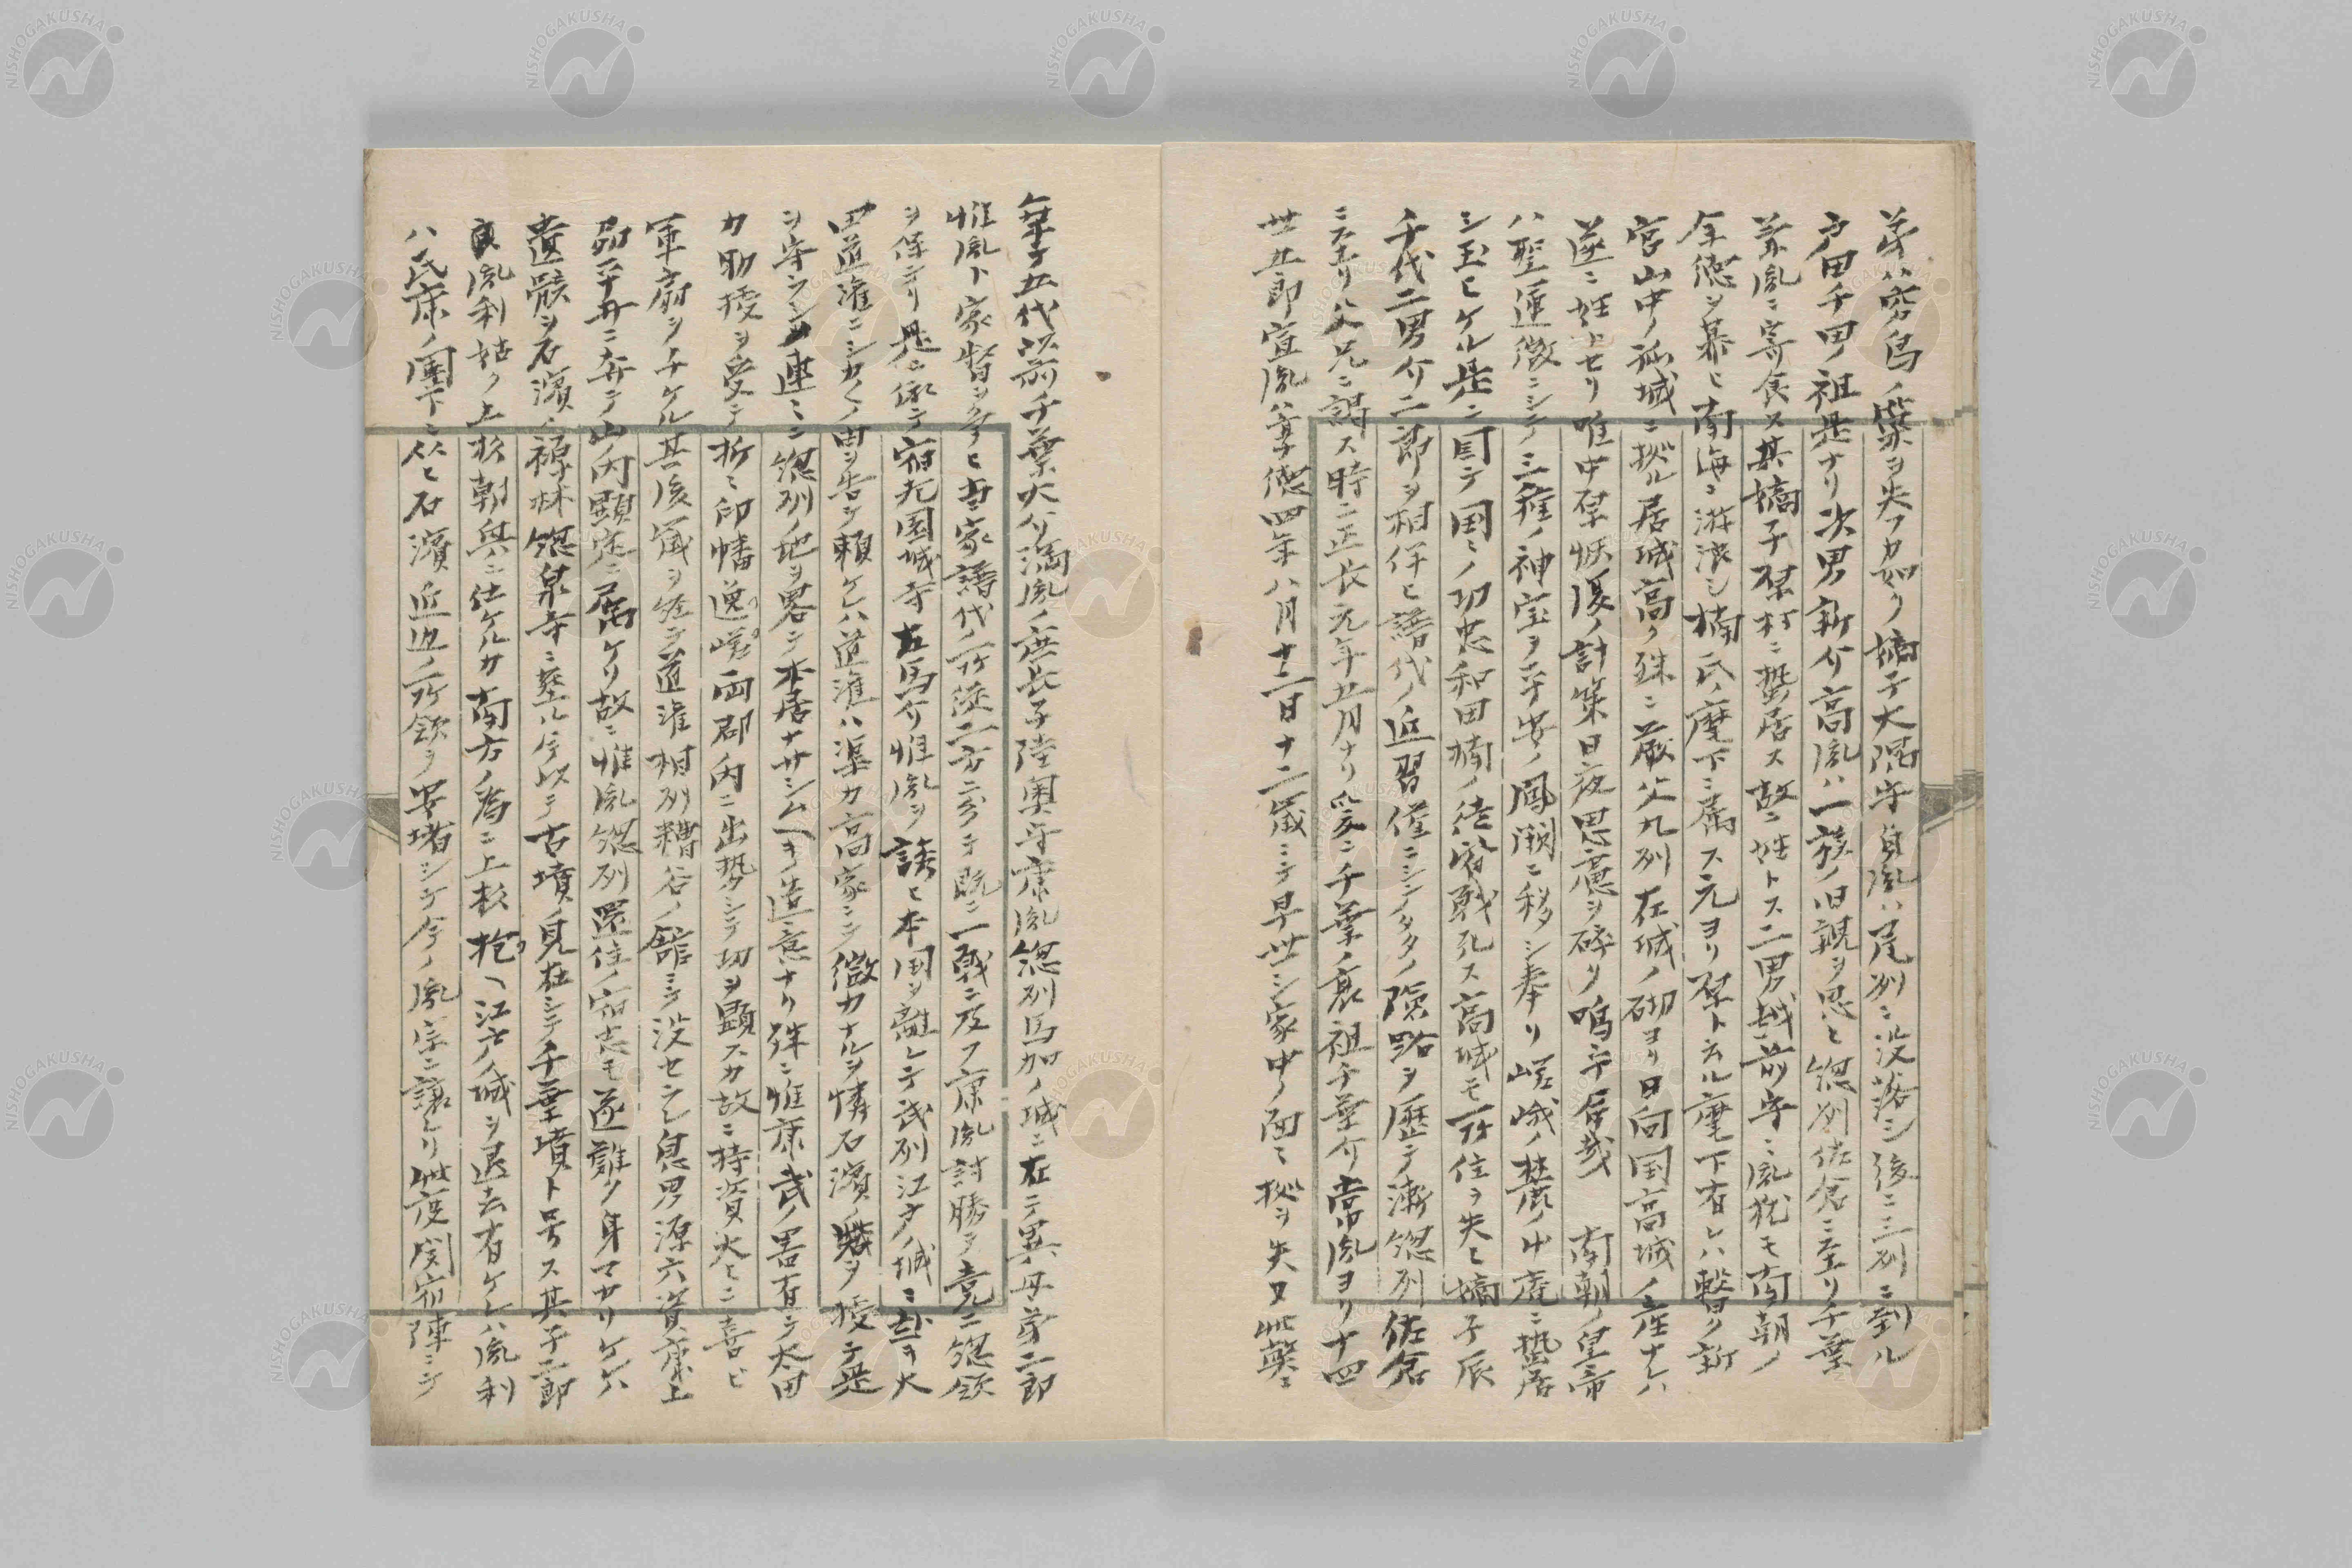 弟ハ窮鳥ノ巣ヲ失フカ如ク嫡子大隅守自胤ハ尾列ニ没落シ後ニ三列ニ到ル
戸田千田ノ祖是ナリ次男新介高胤ハ一族ノ旧親ヲ思ヒ総列佐倉ニ至リ千葉
兼胤ニ寄食ス其嫡子栞村ニ蟄居ス故ニ姓トス二男越前守ニ胤犹モ南朝ノ
余徳ヲ慕ヒ南海ニ游浪シ楠氏ノ麾下ニ属ス元ヨリ栞ト云ル麾下有レハ暫ク新
宮山中ノ孤城ニ拠ル居城高ク殊ニ厳父九列在城ノ砌ヨリ日向国高城ノ産ナレハ
遂ニ姓トセリ唯中栞恢復ノ計策日夜思慮ヲ碎リ嗚乎居哉 南朝ノ皇帝
ハ聖運微ニシテ三種ノ神宝ヲ平安ノ鳳闕ニ移シ奉リ嵯峨ノ麓ノ小庵ニ蟄居
シ玉ヒケル是ニ因テ国ミノ功忠和田楠ノ徒皆戦死ス高城モ所住ヲ失ヒ嫡子辰
千代二男介二郎ヲ相伴ヒ譜代ノ近習僅ニシテ多ノ険路ヲ歴テ漸総列佐倉
ニ至リ父兄ニ謁ス時ニ正長元年五月ナリ爰ニ千葉ノ裏祖千葉介常胤ヨリ十四
世五郎宣胤ハ享徳四年八月十二日十二歳ニテ早世シ家中ノ面ミ拠ヲ失又此弊ニ
年于五代前千葉大介満胤ノ庶長子陸奥守康胤総列馬加ノ城ニ在テ異母弟二郎
惟胤ト家督ヲ争ヒ古家譜代ノ所従二方ニ分テ既ニ一戦ニ及フ康胤討勝ヲ竟ニ総領
ヲ保テリ是ニ依テ宿老園城寺右馬介惟胤ヲ誘ヒ本国ヲ離レテ武列江戸ノ城ニ赴ヲ太
田道潅ニシカくノ由ヲ告ケ頼ケレハ道潅ハ渠カ高家ニシ微力ナルヲ憐石濱ノ砦ヲ授テ是
ヲ守ラシメ連ミニ総列ノ地ヲ畧シ本居ナサシムヘキ造意ナリ殊ニ惟康武ノ畧有テ太田
カ助援ヲ受テ折ミ印幡迊嵯両郡内ニ出勢シテ切ヲ顕スカ故ニ持資大ヒニ喜ビ
軍扇ヲ手ケル其後歳ヲ経テ道潅相列糟谷ノ舘ニテ没セラレ息男源六資康上
総平井ニ奔テ山内顕定ニ属ケリ故ニ惟胤総列還住ノ宿志モ遂難ク身マカリケレハ
遺骸ヲ石濱ノ禅林総泉寺ニ葬ル今以テ古墳ノ見在シテ千葉墳ト号ス其子二郎
良胤利姑ク上杉朝興ニ仕ケルカ南方ノ為ニ上杉抱ヘ江戸ノ城ヲ退去有ケレハ胤利
ハ氏康ノ團下ニ从ヒ石濱近辺ノ所領ヲ安堵シテ今ノ胤宗ニ譲レリ此度関宿陣ニテ